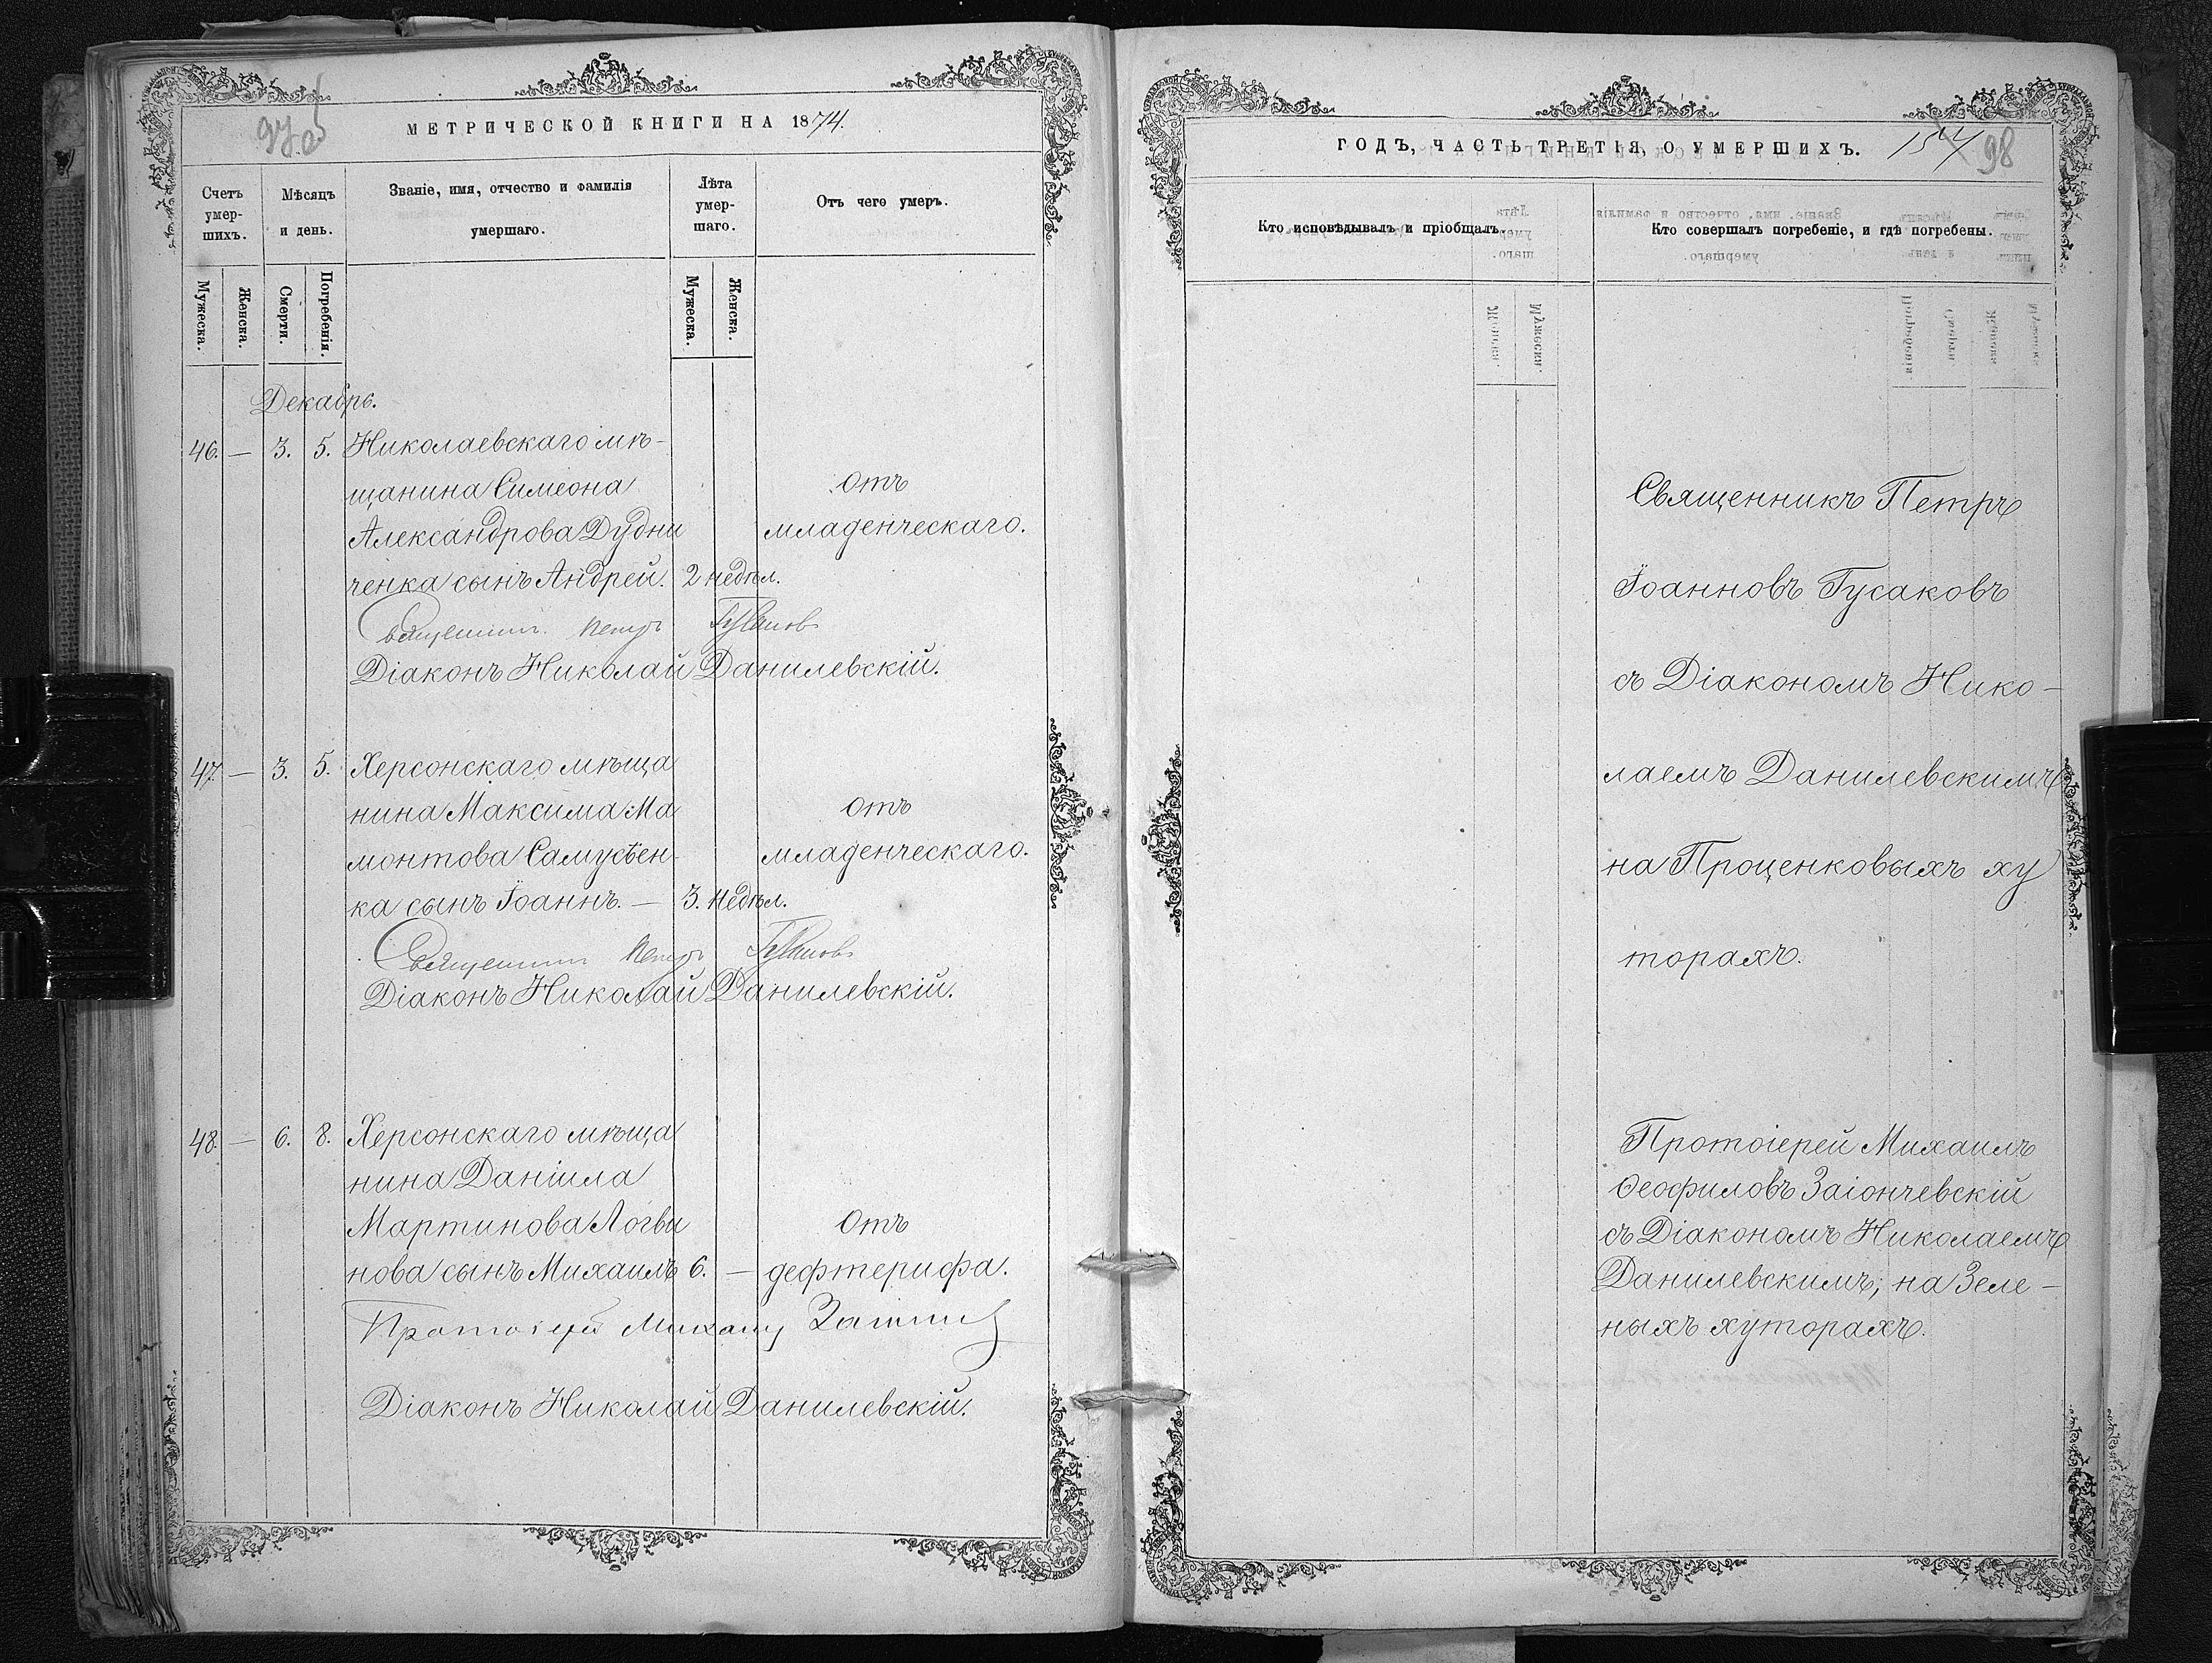 МЕТРИЧЕСКОЙ КНИГИ НА 1874.
Счетъ умер-шихъ.
Мѣсяцъ и день.
Званіе, имя, отчество и фамилія умершаго.
Лѣта умер-шаго.
Отъ чего умеръ.
Мужеска.
Женска.
Смерти.
Погребенія.
Мужеска.
Женска.
Декабрь.
46. — 3. 5. Николаевскаго мѣ-
щанина Симеона отъ
Александрова Дудни младенческаго.
ченка сынъ Андрей. 2 недѣл.
Священникъ Петръ Гусаковъ
Діаконъ Николай Данилевскій.
47. — 3. 5. Херсонскаго мѣща
нина Максима Ма отъ
монтова Самусѣен- младенческаго.
ка сынъ Іоаннъ. — 3. недѣл.
Священникъ Петръ Гусаковъ
Діаконъ Николай Данилевскій.
48. — 6. 8. Херсонскаго мѣща
нина Даніила
Мартинова Логви Отъ
нова сынъ Михаилъ 6. — дефтерифа.
Протоіерей Михаилъ
Діаконъ Николай Данилевскій.
ГОДЪ, ЧАСТЬ ТРЕТІЯ, О УМЕРШИХЪ. 154 98
Кто исповѣдывалъ и пріобщалъ.
Кто совершалъ погребеніе, и гдѣ погребены.
Священникъ Петръ
Іоанновъ Гусаковъ
съ Діакономъ Нико-
лаемъ Данилевскимъ
на Проценковыхъ ху
торахъ.
Протоіерей Михаилъ
Ѳеофиловъ Заіончевскій
съ Діакономъ Николаемъ
Данилевскимъ; на Зеле-
ныхъ хуторахъ.